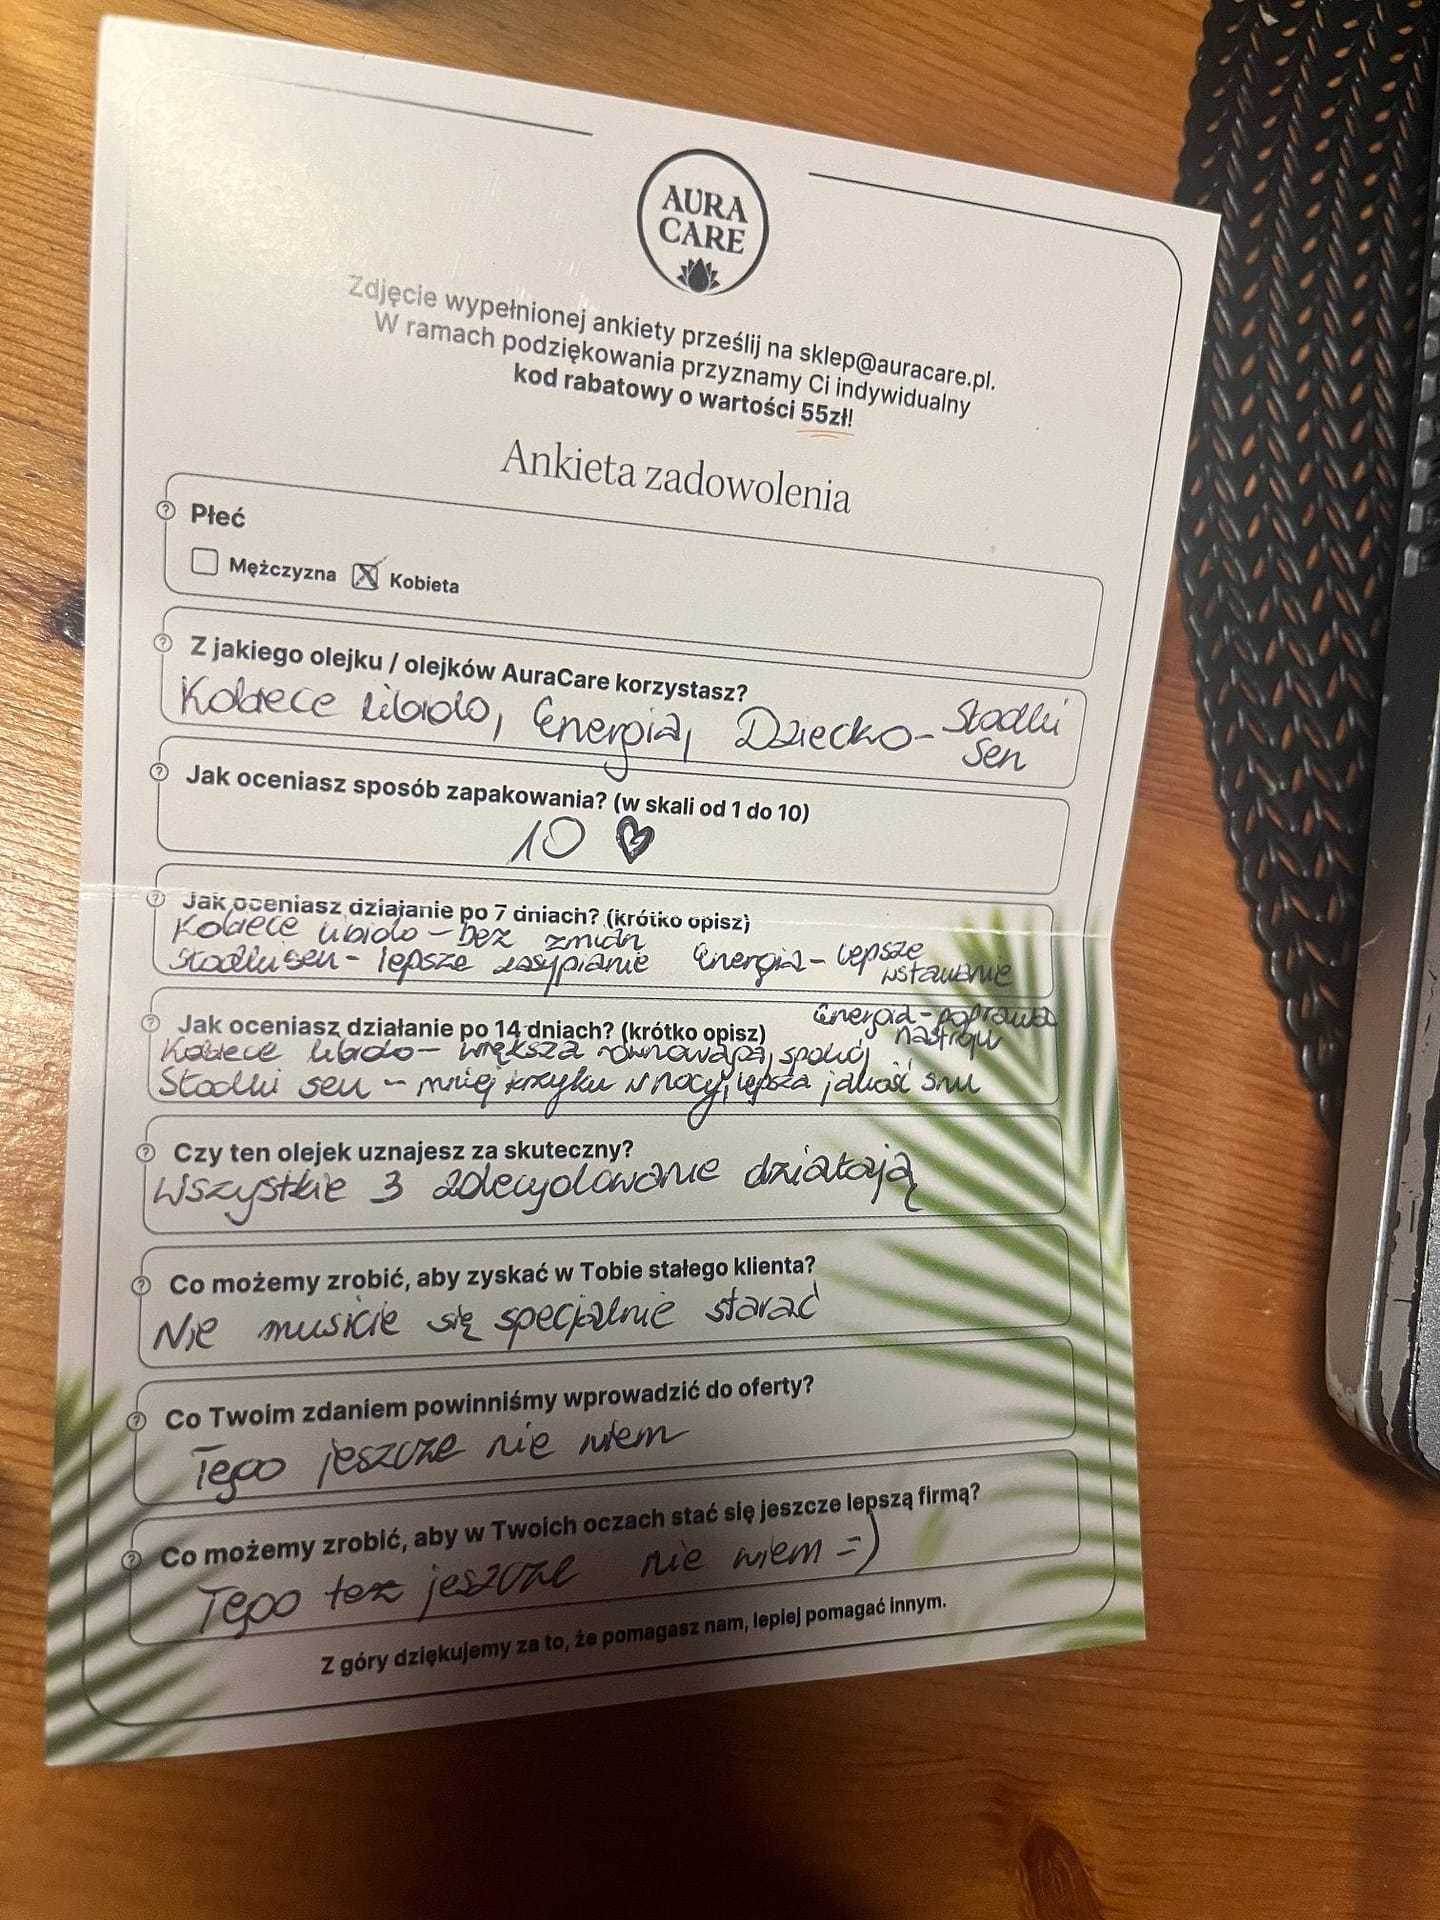 AURA
CARE
Zdjęcie wypełnionej ankiety prześlij na sklep@auracare.pl.
W ramach podziękowania przyznamy Ci indywidualny
kod rabatowy o wartości 55zł!
Ankieta zadowolenia
Płeć
Mężczyzna Kobieta
Z jakiego olejku / olejków AuraCare korzystasz?
Kobiece libido, Energia, Dziecko - Słodki
sen
Jak oceniasz sposób zapakowania? (w skali od 1 do 10)
10
Jak oceniasz działanie po 7 dniach? (krótko opisz)
Kobiece libido - bez zmian
Słodki sen - lepsze zasypianie Energia - lepsze
wstawanie
Jak oceniasz działanie po 14 dniach? (krótko opisz)
Energia - poprawa
nastroju
Kobiece libido - większa równowaga, spokój
Słodki sen - mniej krzyku w nocy, lepsza jakość snu
Czy ten olejek uznajesz za skuteczny?
Wszystkie 3 zdecydowanie działają
Co możemy zrobić, aby zyskać w Tobie stałego klienta?
Nie musicie się specjalnie starać
Co Twoim zdaniem powinniśmy wprowadzić do oferty?
Tego jeszcze nie wiem
Co możemy zrobić, aby w Twoich oczach stać się jeszcze lepszą firmą?
Tego też jeszcze nie wiem =)
Z góry dziękujemy za to, że pomagasz nam, lepiej pomagać innym.